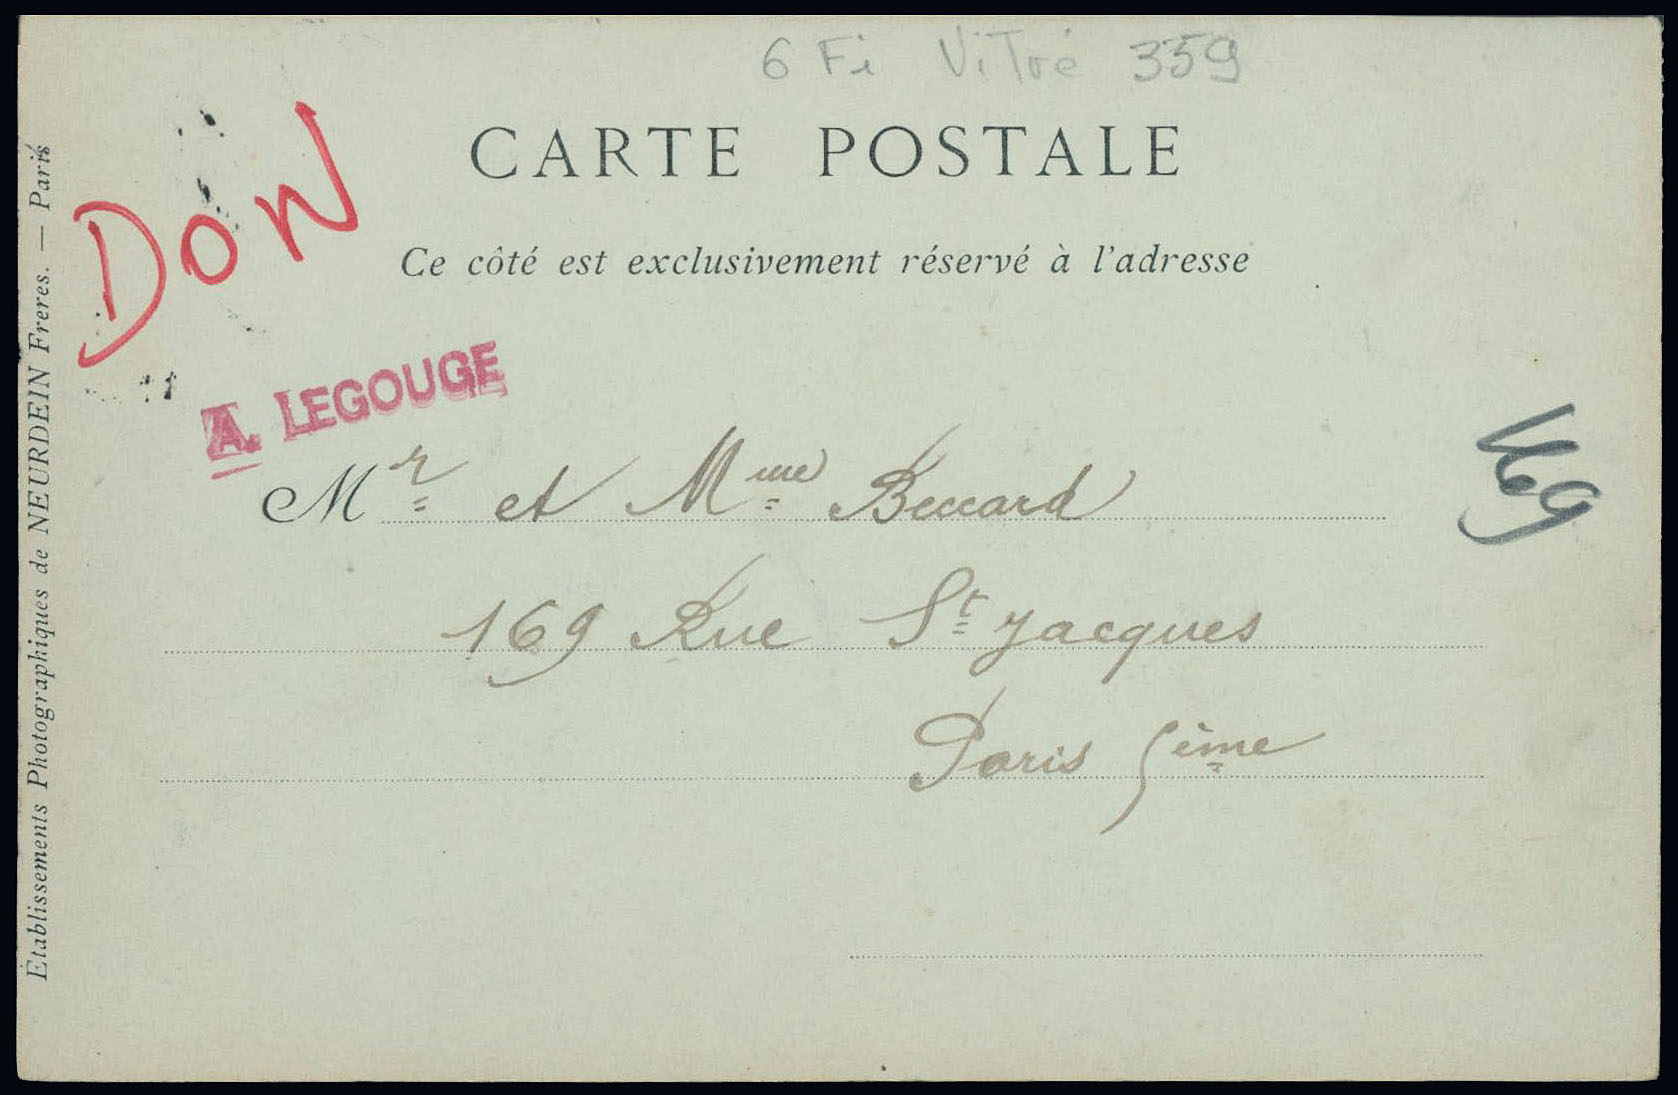 6 Fi Vitré 359
CARTE POSTALE
Ce côté est exclusivement réservé à l'adresse
DON
A. LEGOUGE
Mr et Mme Beccard
169 Rue St Jacques
Paris 5ème
Etablissements Photographiques de NEURDEIN Freres. — Paris